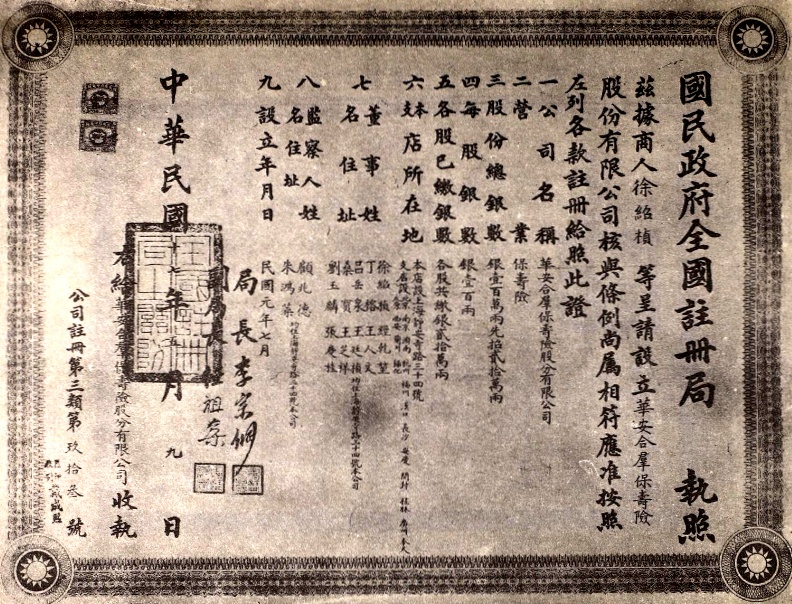 國民政府全國註冊局 執照
茲據商人徐紹楨 等呈請設立華安合羣保壽險
股份有限公司核與條例尚屬相符應准按照
左列各款註冊給照此證
一公司名稱 華安合羣保壽險股份有限公司
二營業 保壽險
三股份總銀數 銀壹百萬兩先招貳拾萬兩
四每股銀數 銀壹百兩
五各股已繳銀數 各股共繳銀貳拾萬兩
六本支店所在地 本店設上海靜安寺路三十四號
七董事姓名住址 徐紹楨 經乾堃
丁榕 王人文
呂岳泉 王廷楨
桑寶 王芝祥
劉玉麟 張度桂
八監察人姓名住址 顧兆德
朱鴻藻
九設立年月日 民國元年七月
局長李宗侗
副局長 祖榘
中華民國十七年五月九日
右給華安合羣保壽險股份有限公司 收執
公司註冊第三類第玖拾叁號